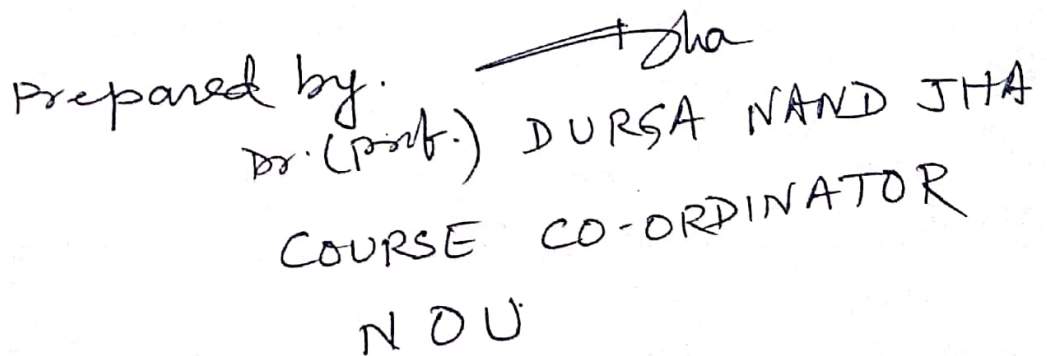 Prepared by. Jha
Dr. (Prof.) DURGA NAND JHA
COURSE CO-ORDINATOR
NOU